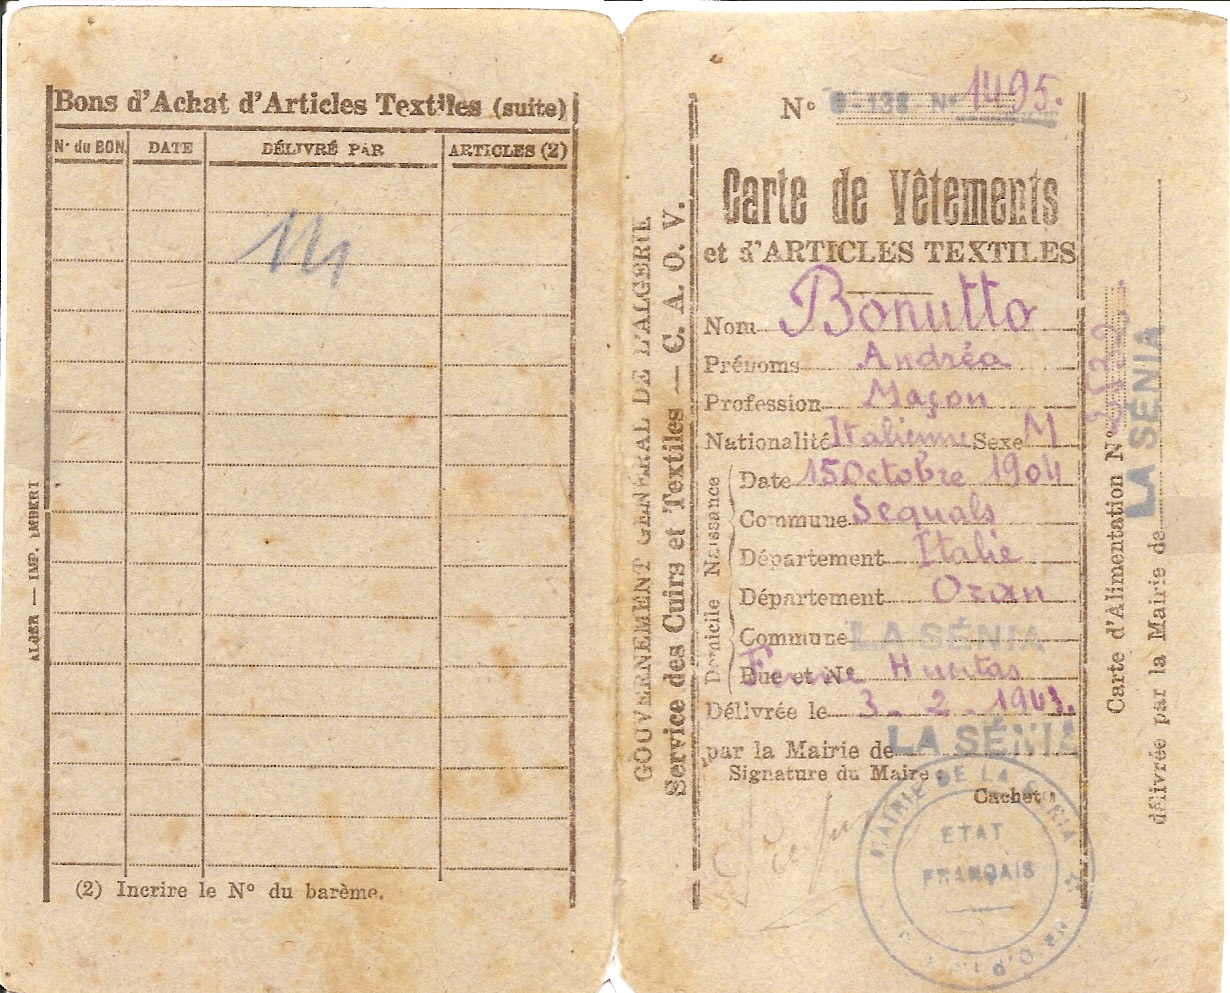 Bons d'Achat d'Articles Textiles (suite)
N° du BON DATE DÉLIVRÉ PAR ARTICLES (2)
(2) Incrire le N° du barème.
ALGER — IMP. IMBERT
GOUVERNEMENT GÉNÉRAL DE L'ALGERIE
Service des Cuirs et Textiles — C. A. O. V.
N° 0-138-N° 1495.
Carte de Vêtements
et d'ARTICLES TEXTILES
Nom Bonutto
Prénoms Andréa
Profession Maçon
Nationalité Italienne Sexe M
Naissance
Date 15 Octobre 1904
Commune Sequals
Département Italie
Domicile
Département Oran
Commune LA SÉNIA
Rue et N° Ferme Huertas
Délivrée le 3-2-1943.
par la Mairie de LA SÉNIA
Signature du Maire :
Cachet :
MAIRIE DE LA SÉNIA
ETAT
FRANÇAIS
Carte d'Alimentation N°
délivrée par la Mairie de LA SÉNIA